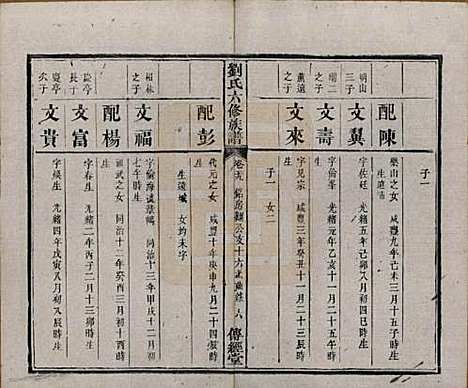 子一
配陳
樂山之女 咸豐九年己未三月十五子時
生適遠
明山
三子
文翼
字佐廷 光緒五年己卯八月初八己卯時
生
瑞二
之子
文壽
字倫筆 光緒元年乙亥十一月二十五午時
生
薰遠
之子
文來
字見宗 咸豐三年癸丑十一月二十三辰時
生
子一 女二
劉氏六修族譜
卷廿九 銘房 公支十六
傳經堂
配彭
代元之女 咸豐十年庚申九月二十四時
生
生陵城 女均未字
桓林
之子
文福
字倫海 同治十三年甲戌十一月
十二卯時生
配楊
祖武之女 同治十二年癸酉三月初十酉時
生
岐亭
長子
文富
字春生 光緒二年丙子二月十三卯時生
岐亭
次子
文貴
字煥生 光緒四年戊寅八月初八辰時生